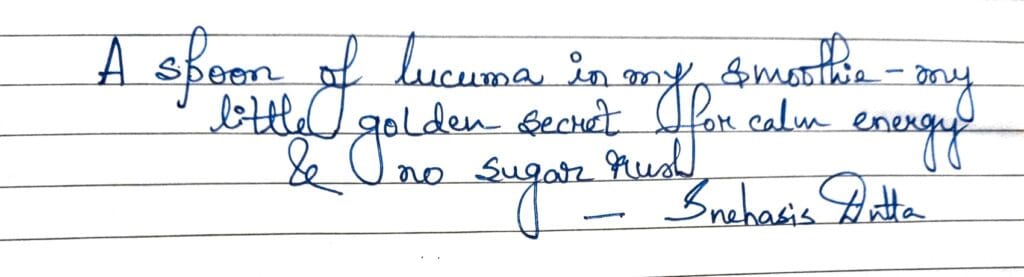 A spoon of lucuma in my smoothie - my
little golden secret for calm energy
& no sugar rush
- Snehasis Dutta